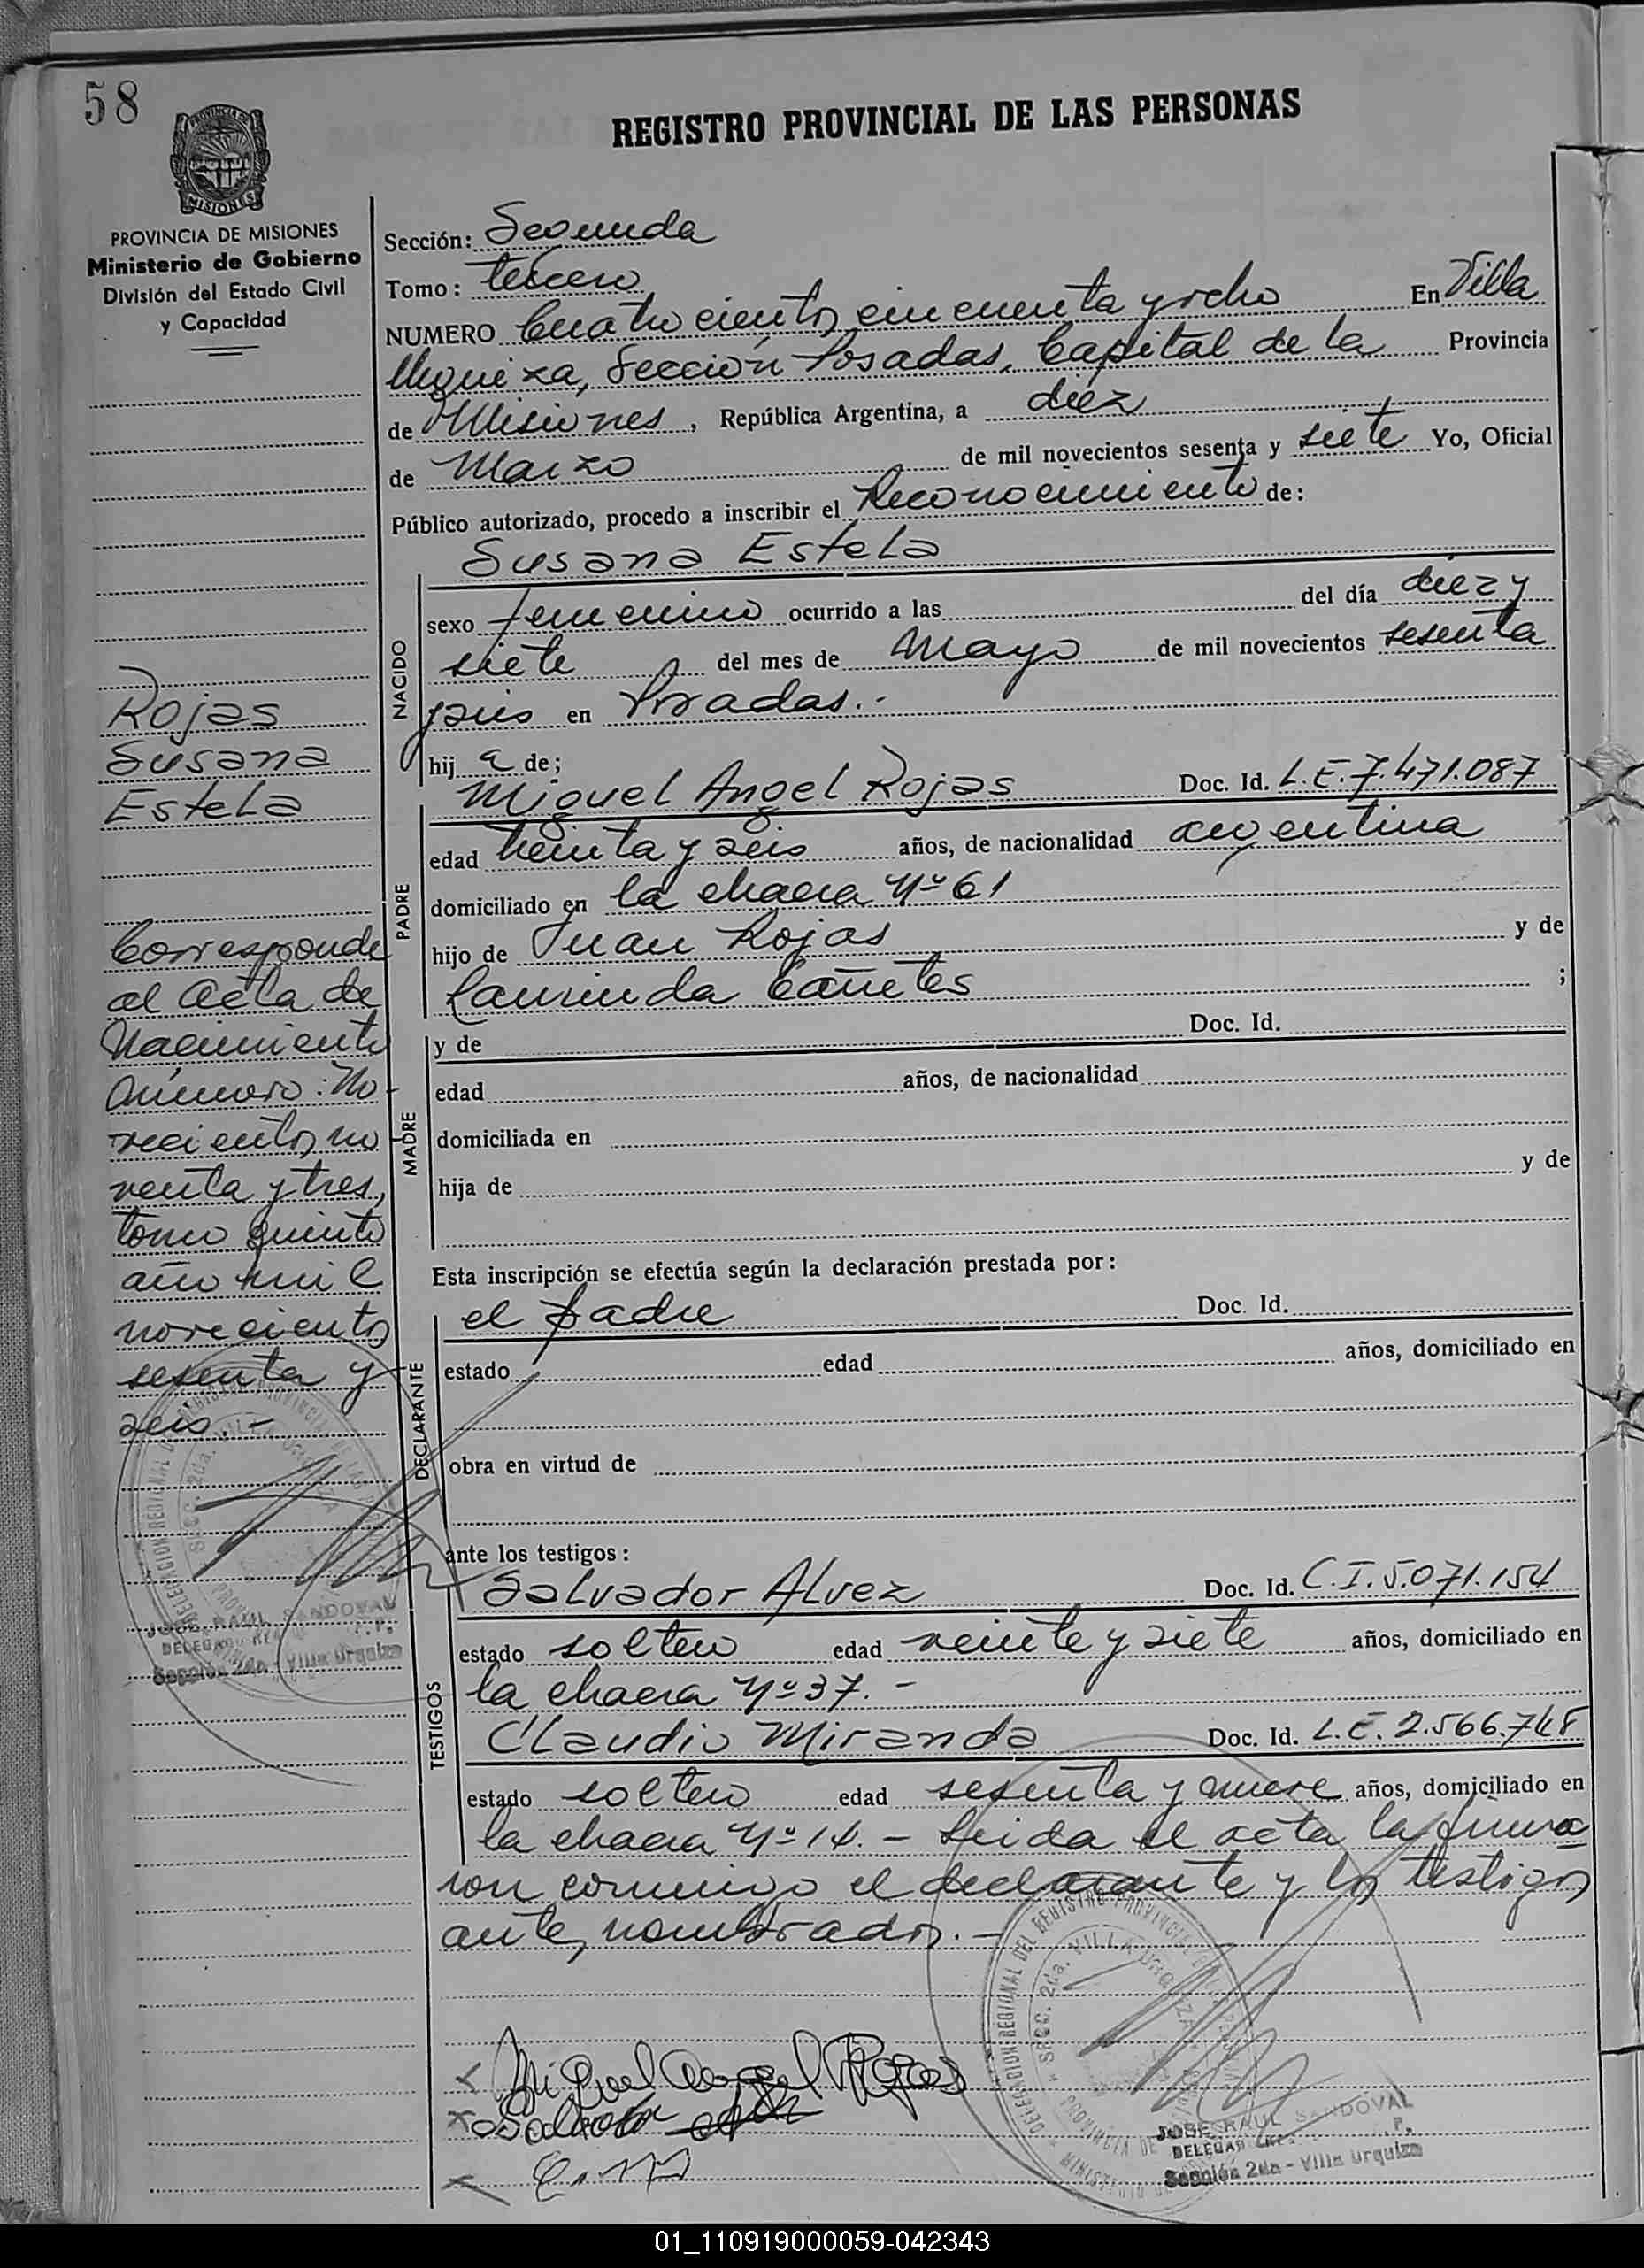 58
REGISTRO PROVINCIAL DE LAS PERSONAS
PROVINCIA DE MISIONES
Ministerio de Gobierno
División del Estado Civil
y Capacidad
Sección: Segunda
Tomo: tercero
NUMERO Cuatrocientos cincuenta y ocho En Villa
Urquiza, Sección Posadas, Capital de la Provincia
de Misiones, República Argentina, a diez
de Marzo de mil novecientos sesenta y siete Yo, Oficial
Público autorizado, procedo a inscribir el Reconocimiento de:
Susana Estela
NACIDO
sexo femenino ocurrido a las del día diez y
siete del mes de Mayo de mil novecientos sesenta
y seis en Posadas.-
hij a de;
PADRE
Miguel Angel Rojas Doc. Id. L.E. 7.471.087
edad treinta y seis años, de nacionalidad argentina
domiciliado en la chacra Nº 61
hijo de Juan Rojas y de
Cañetes ;
MADRE
y de Doc. Id.
edad años, de nacionalidad
domiciliada en
hija de y de
Esta inscripción se efectúa según la declaración prestada por:
DECLARANTE
el padre Doc. Id.
estado edad años, domiciliado en
obra en virtud de
ante los testigos:
TESTIGOS
Salvador Alvez Doc. Id. C.I. 5.071.154
estado soltero edad veinte y siete años, domiciliado en
la chacra Nº 37.-
Claudio Miranda Doc. Id. L.E. 2.566.748
estado soltero edad sesenta y nueve años, domiciliado en
la chacra Nº 14.- Leida el acta la firma
ron conmigo el declarante y los testigos
antes nombrados.-
Rojas
Susana
Estela
Corresponde
al acta de
Nacimiento
número: No-
vecientos no
venta y tres,
tomo quinto
año mil
novecientos
sesenta y
seis.-
DELEGACION REGIONAL DEL REGISTRO PROVINCIAL DE LAS PERSONAS
SECC. 2da. VILLA URQUIZA
JOSE RAUL SANDOVAL
Sección 2da - Villa Urquiza
Miguel Angel Rojas
Salvador
C. M
DELEGACION REGIONAL DEL REGISTRO PROVINCIAL DE LAS PERSONAS
SECC. 2da. VILLA URQUIZA
JOSE RAUL SANDOVAL
Sección 2da - Villa Urquiza
01_110919000059-042343